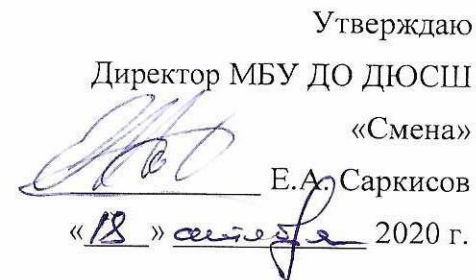 Утверждаю
Директор МБУ ДО ДЮСШ
«Смена»
Е.А. Саркисов
«18» сентября 2020 г.